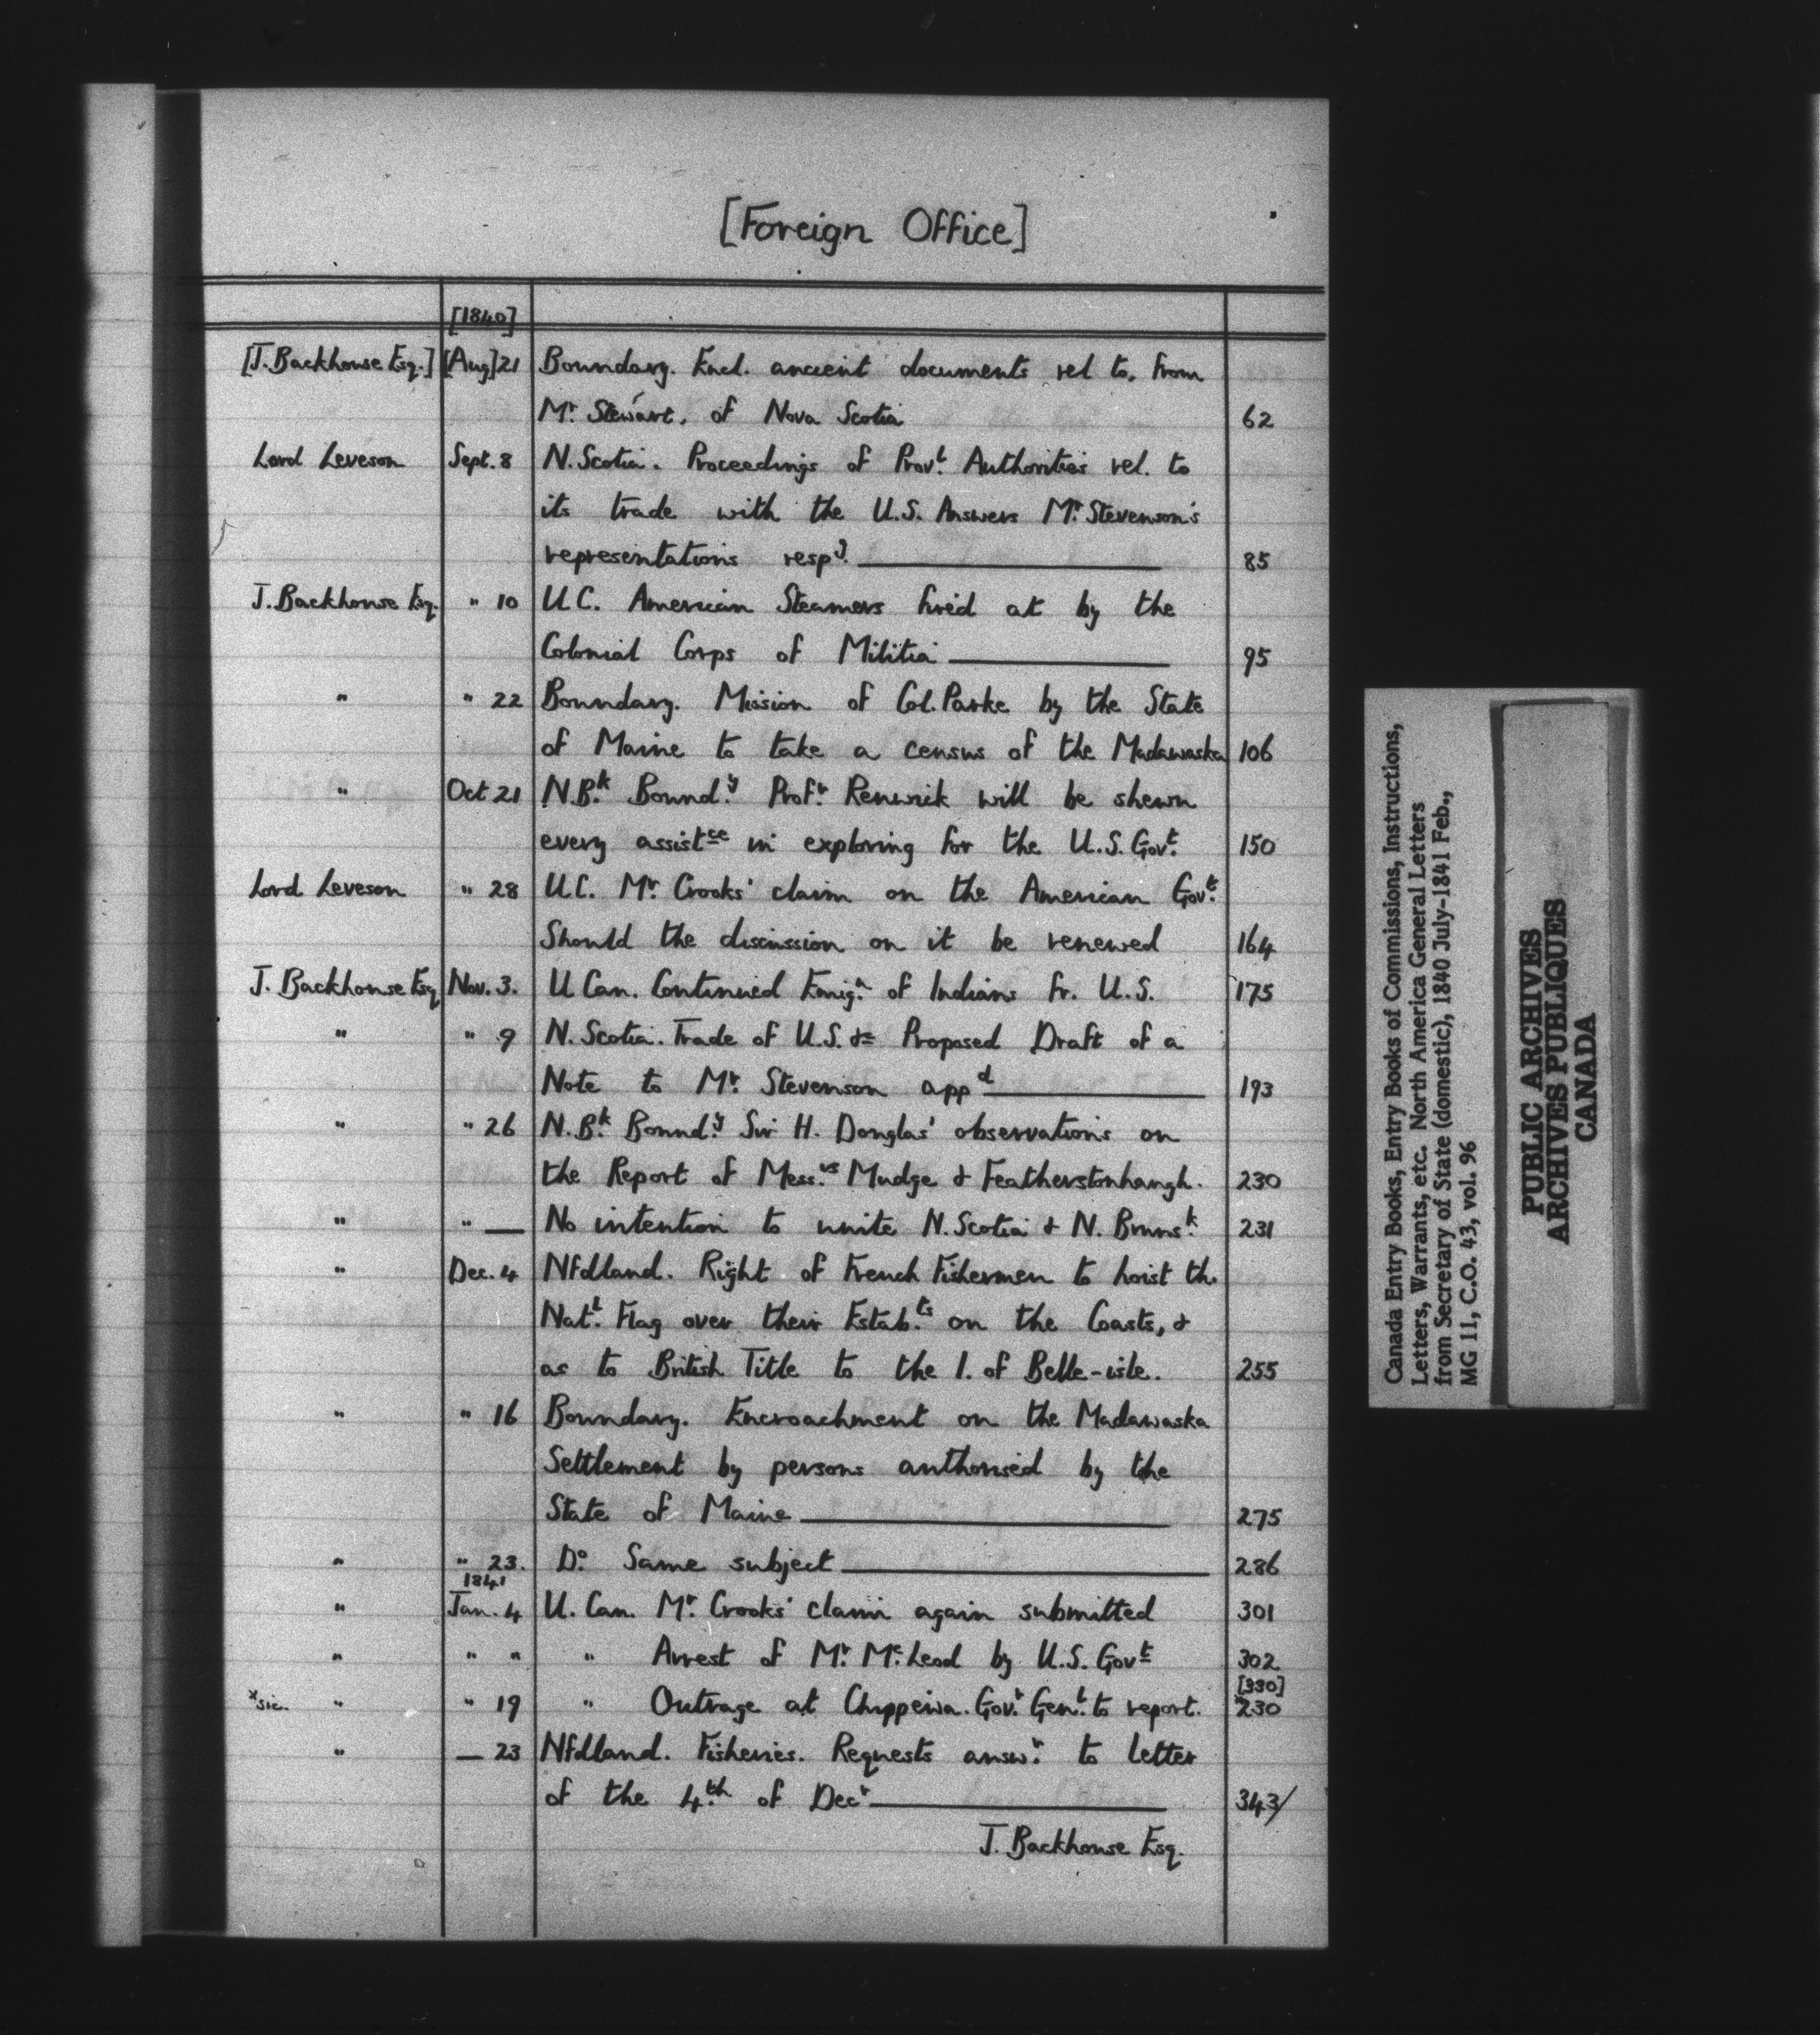 [Foreign Office]
[1840]
[J. Backhouse Esq.] [Aug] 21 Boundary. Encl. ancient documents rel to, from
Mr. Stewart, of Nova Scotia 62
Lord Leveson Sept. 8 N. Scotia. Proceedings of Provl. Authorities rel. to
its trade with the U.S. Answers Mr. Stevenson's
representations respg. 85
J. Backhouse Esq. " 10 U.C. American Steamers fired at by the
Colonial Corps of Militia 95
" " 22 Boundary. Mission of Col. Parke by the State
of Maine to take a census of the Madawaska 106
" Oct 21 N.Bk. Boundy. Profr. Renwick will be shewn
every assistce in exploring for the U.S. Govt. 150
Lord Leveson " 28 U.C. Mr. Crooks' claim on the American Govt.
Should the discussion on it be renewed 164
J. Backhouse Esq Nov. 3. U Can. Continued Emign. of Indians fr. U.S. 175
" " 9 N. Scotia. Trade of U.S. &c Proposed Draft of a
Note to Mr. Stevenson appd 193
" " 26 N.Bk. Boundy. Sir H. Douglas' observations on
the Report of Messrs. Mudge & Featherstonhaugh. 230
" " — No intention to unite N. Scotia & N. Brunsk. 231
" Dec. 4 Nfdland. Right of French Fishermen to hoist th.
Natl. Flag over their Estabts. on the Coasts, &
as to British Title to the I. of Belle-isle. 255
" " 16 Boundary. Encroachment on the Madawaska
Settlement by persons authorised by the
State of Maine 275
" " 23. Do. Same subject 286
1841
" Jan. 4 U. Can. Mr. Crooks' claim again submitted 301
" " " " Arrest of Mr. McLeod by U.S. Govt 302
[330]
*sic. " " 19 " Outrage at Chippewa. Govr. Genl. to report. *230
" — 23 Nfdland. Fisheries. Requests answr. to letter
of the 4th. of Decr 343/
J. Backhouse Esq.
Canada Entry Books, Entry Books of Commissions, Instructions,
Letters, Warrants, etc. North America General Letters
from Secretary of State (domestic), 1840 July-1841 Feb.,
MG 11, C.O. 43, vol. 96
PUBLIC ARCHIVES
ARCHIVES PUBLIQUES
CANADA